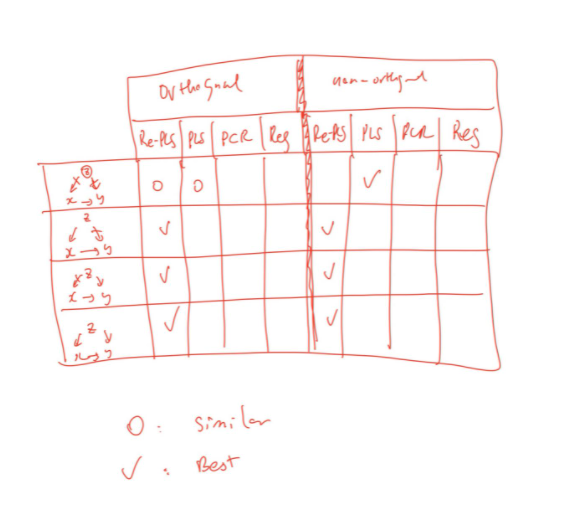 Orthogonal non-orthgnl
Re-PLS PLS PCR Reg Re-PLS PLS PCR Reg
z
x → y O O ✓
z
x → y ✓ ✓
z
x → y ✓ ✓
z
x → y ✓ ✓
O : similar
✓ : Best